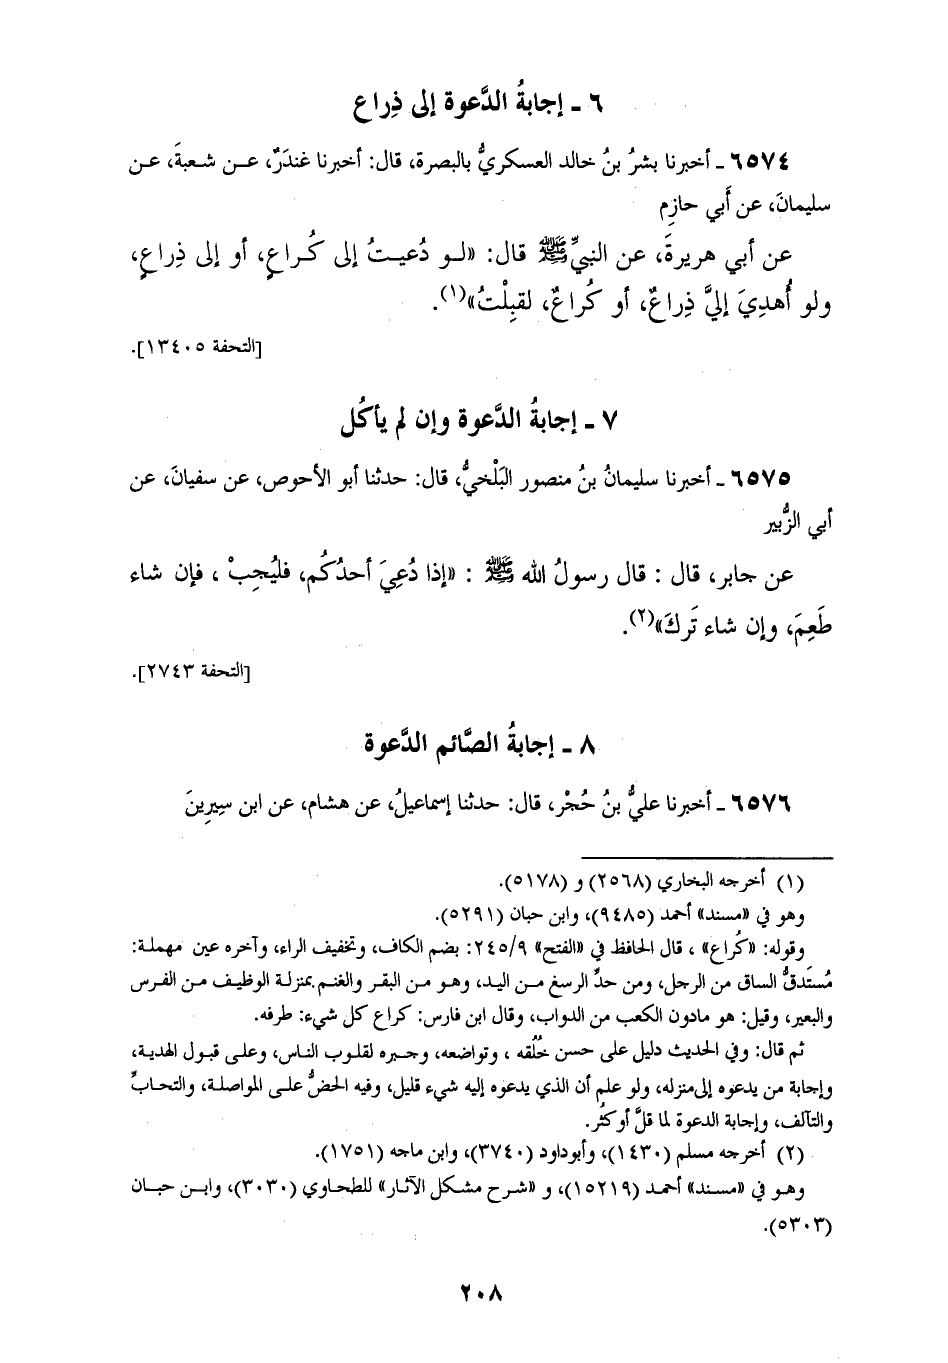 ٦ ـ إجابةُ الدَّعوة إلى ذِراع
٦٥٧٤ ـ أخبرنا بشرُ بنُ خالد العسكريُّ بالبصرة، قال: أخبرنا غندَرٌ، عـن شعبةَ، عـن
سليمانَ، عن أَبي حازِم
عن أبي هريرةَ، عن النبيِّ ﷺ قال: «لـو دُعيـتُ إلى كُـراعٍ، أو إلى ذِراعٍ،
ولو أُهديَ إليَّ ذِراعٌ، أو كُراعٌ، لقبِلْتُ»(١).
[التحفة ١٣٤٠٥].
٧ ـ إجابةُ الدَّعوة وإن لم يأكُل
٦٥٧٥ ـ أخبرنا سليمانُ بنُ منصور البَلْخيُّ، قال: حدثنا أبو الأحوص، عن سفيانَ، عن
أبي الزُّبير
عن جابر، قال : قال رسولُ الله ﷺ : «إذا دُعِيَ أحدُكُم، فليُجِبْ ، فإن شاء
طَعِمَ، وإن شاء تَركَ»(٢).
[التحفة ٢٧٤٣].
٨ ـ إجابةُ الصَّائم الدَّعوة
٦٥٧٦ ـ أخبرنا عليُّ بنُ حُجْر، قال: حدثنا إسماعيلُ، عن هشام، عن ابن سِيرِينَ
(١) أخرجه البخاري (٢٥٦٨) و (٥١٧٨).
وهو في «مسند» أحمد (٩٤٨٥)، وابن حبان (٥٢٩١).
وقوله: «كُراع» ، قال الحافظ في «الفتح» ٢٤٥/٩: بضم الكاف، وتخفيف الراء، وآخره عين مهملة:
مُستَدقُّ الساق من الرجل، ومن حدِّ الرسغ مـن اليد، وهـو مـن البقر والغنم بمنزلة الوظيف مـن الفرس
والبعير، وقيل: هو مادون الكعب من الدواب، وقال ابن فارس: كراع كل شيء: طرفه.
ثم قال: وفي الحديث دليل على حسن خُلُقه ، وتواضعه، وجبره لقلوب الناس، وعلى قبول الهدية،
وإجابة من يدعوه إلى منزله، ولو علم أن الذي يدعوه إليه شيء قليل، وفيه الحضُّ علـى المواصلة، والتحابِّ
والتآلف، وإجابة الدعوة لما قلَّ أو كثُر.
(٢) أخرجه مسلم (١٤٣٠)، وأبوداود (٣٧٤٠)، وابن ماجه (١٧٥١).
وهـو في «مسند» أحمـد (١٥٢١٩)، و «شرح مشكل الآثـار» للطحاوي (٣٠٣٠)، وابـن حبـان
(٥٣٠٣).
٢٠٨